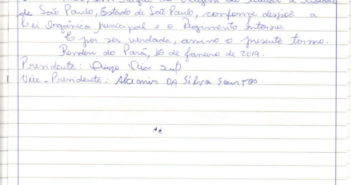 de São Paulo, Estado de São Paulo, conforme dispõe a
Lei Orgânica municipal e o Regimento Interno
E por ser verdade, assino o presente termo.
Rondon do Pará, 16 de janeiro de 2019.
Presidente:
Vice-Presidente: Alcemir DA Silva Santos